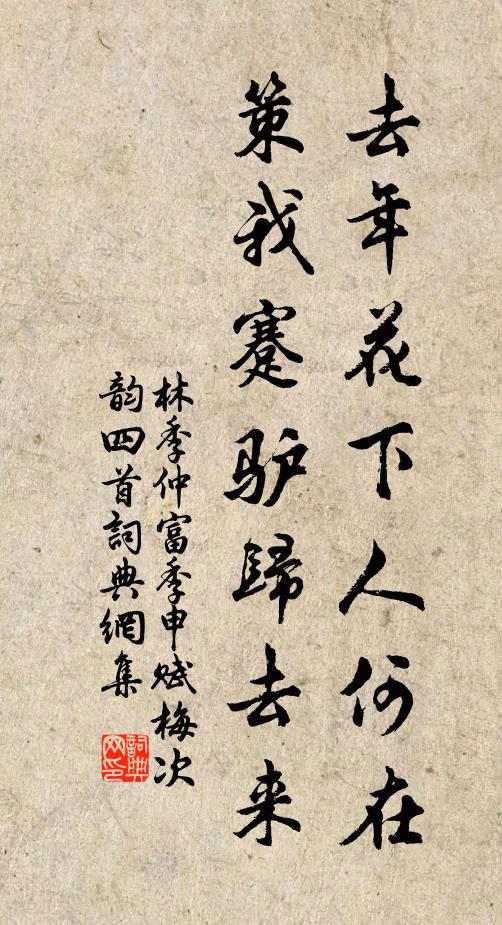 去年花下人何在
策我蹇驴歸去来
林季仲富季申赋梅次
韵四首詞典網集
詞典
网印